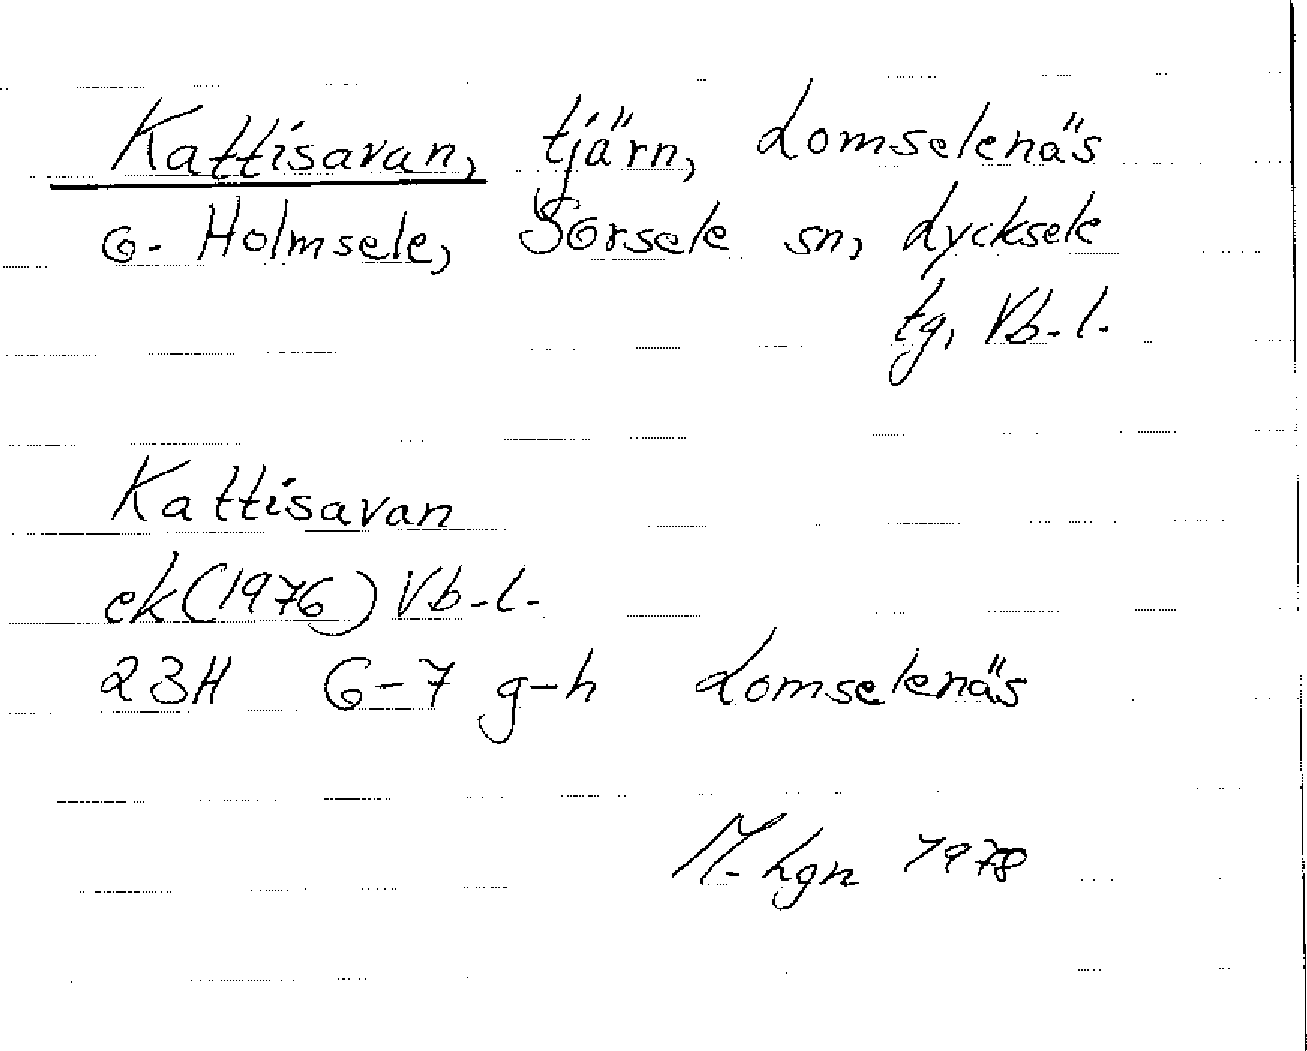 Kattisavan, tjärn, Lomselenäs
o. Holmsele, Sorsele sn, Lycksele
tg, Vb.l.
Kattisavan
ek(1976) Vb.l.
23H 6-7 g-h Lomselenäs
M.hgn 1978